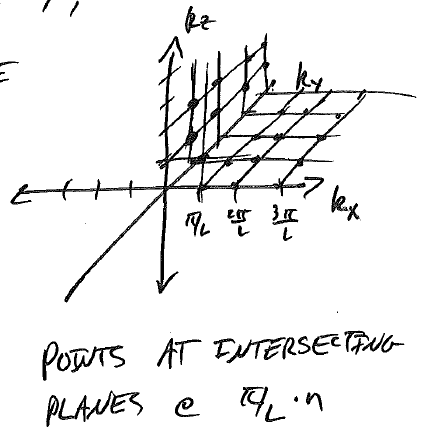 kz
E
ky
kx
π/L 2π/L 3π/L
POINTS AT INTERSECTING
PLANES @ π/L · n